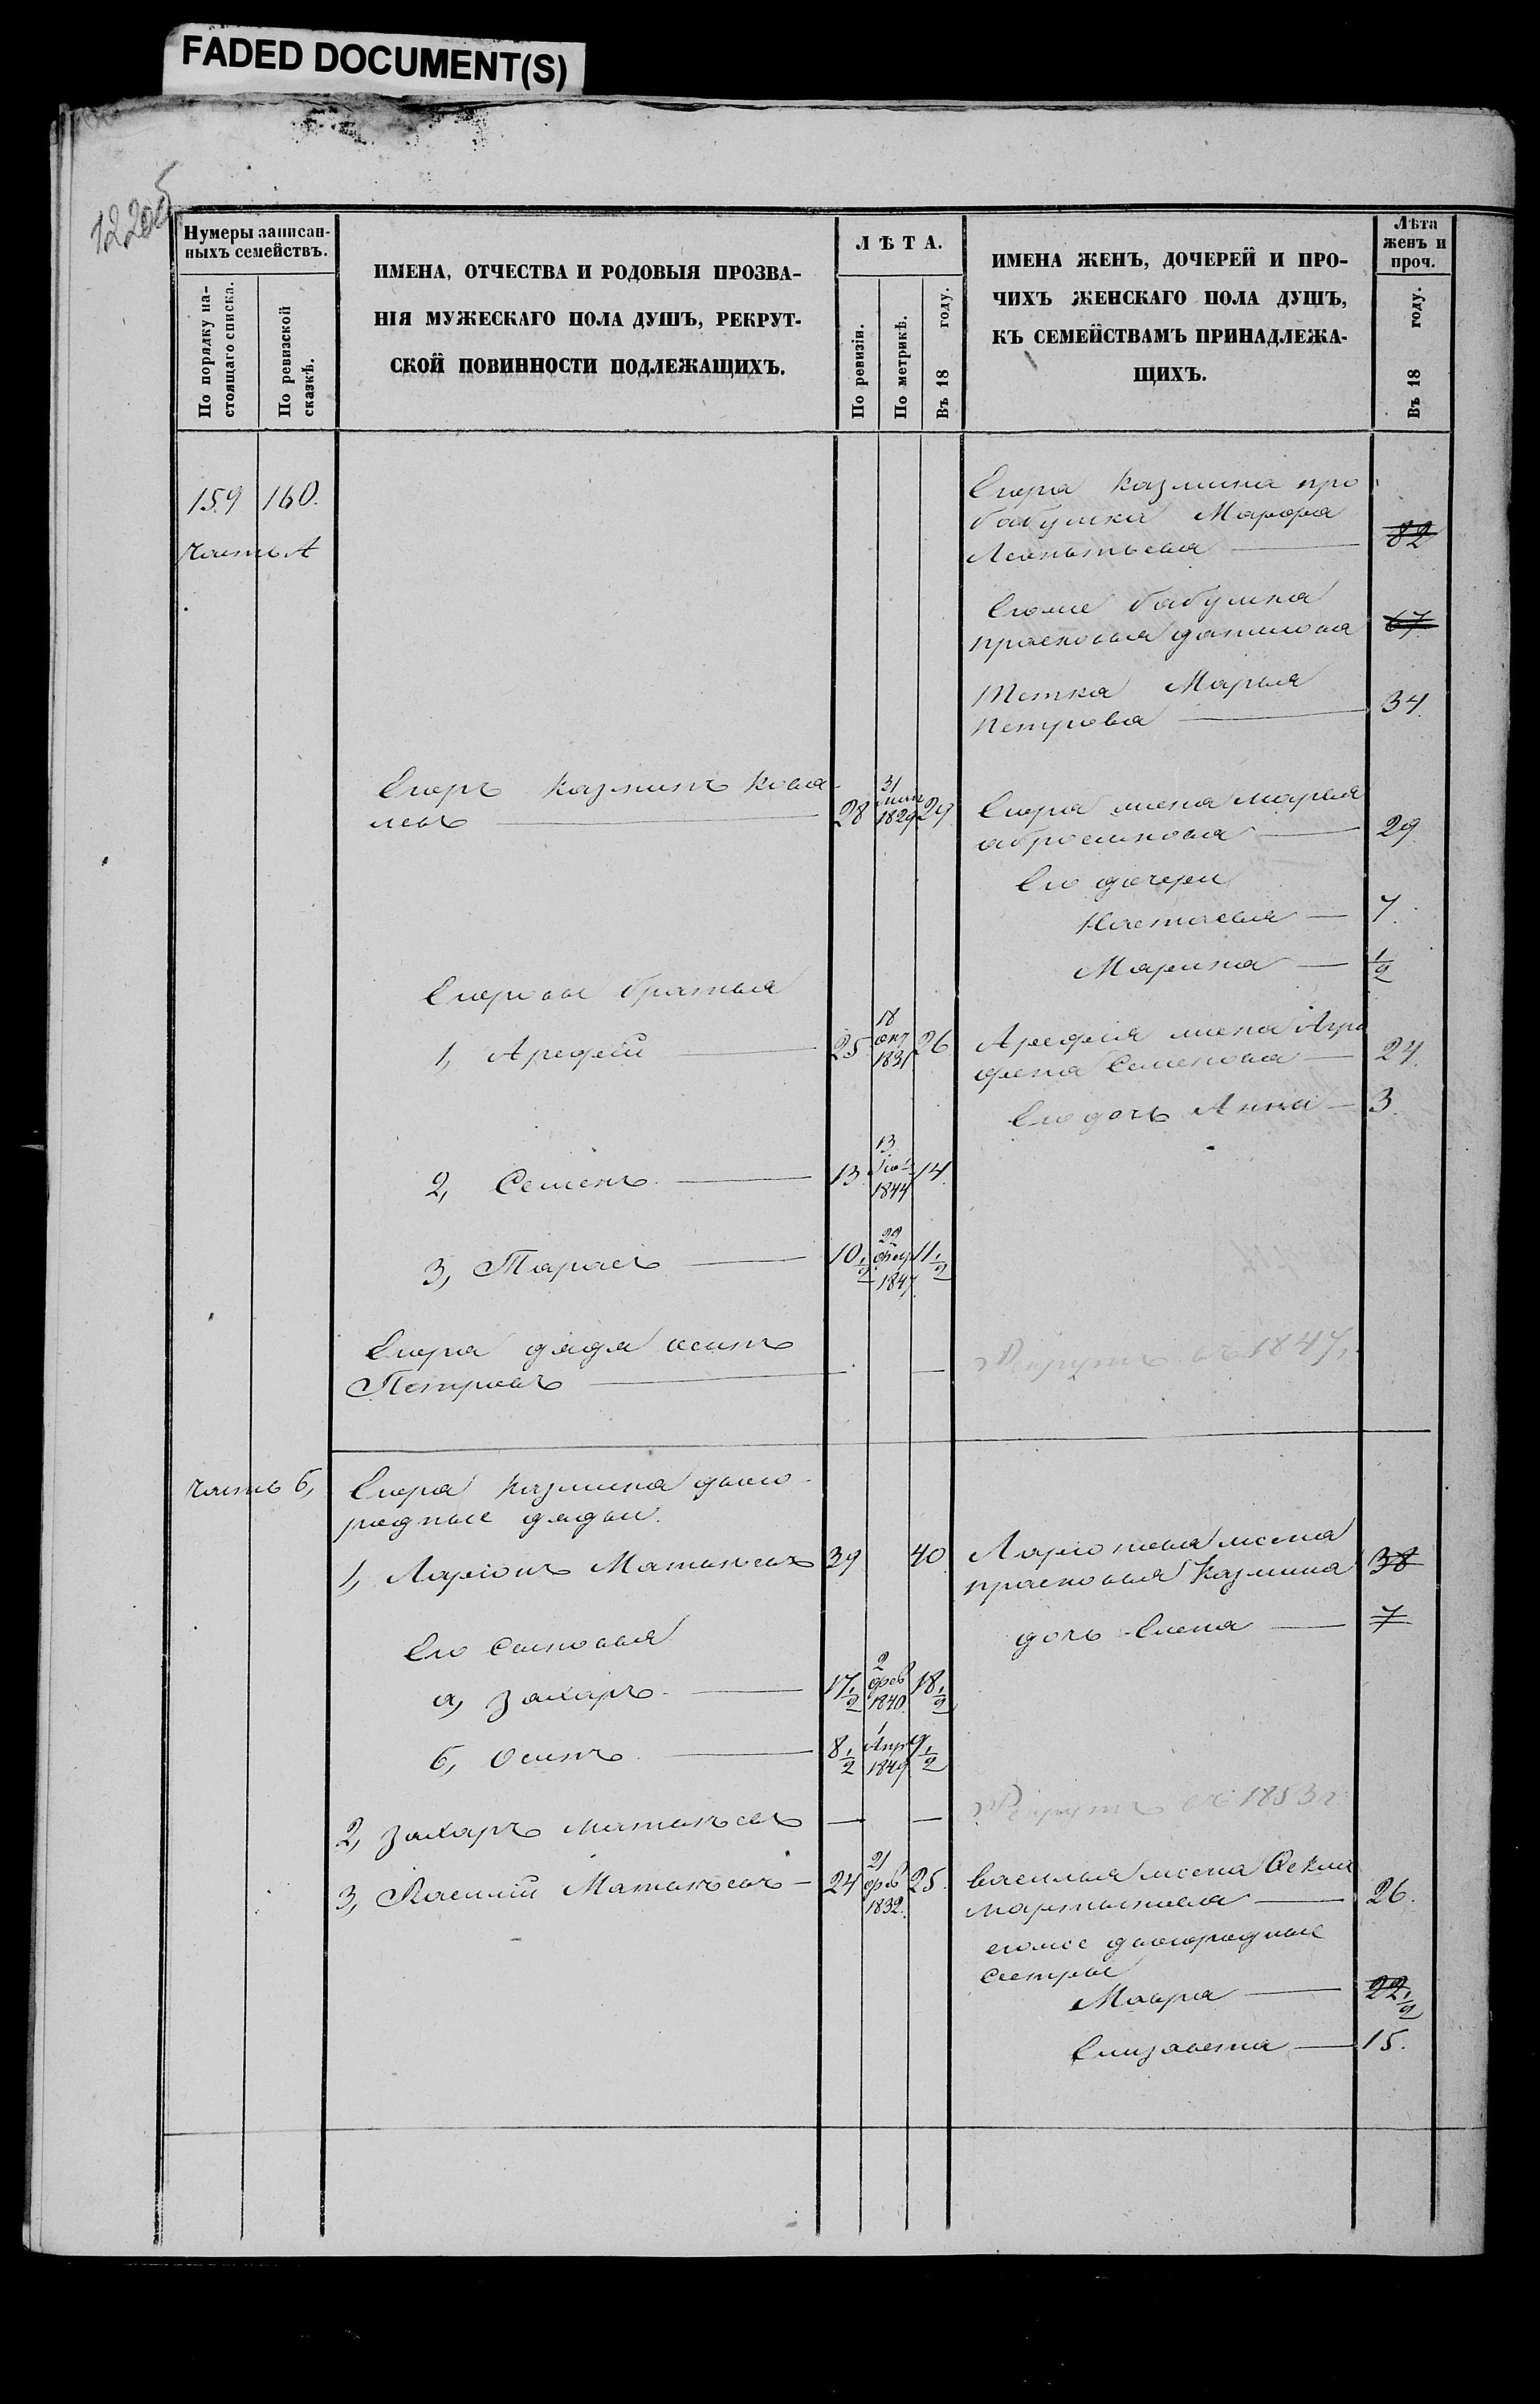 FADED DOCUMENT(S)
Нумеры записан-
ныхъ семействъ.
По порядку на-
стоящаго списка.
По ревизской
сказкѣ.
ИМЕНА, ОТЧЕСТВА И РОДОВЫЯ ПРОЗВА-
НІЯ МУЖЕСКАГО ПОЛА ДУШЪ, РЕКРУТ-
СКОЙ ПОВИННОСТИ ПОДЛЕЖАЩИХЪ.
ЛѢТА.
По ревизіи.
По метрикѣ.
Въ 18 году.
ИМЕНА ЖЕНЪ, ДОЧЕРЕЙ И ПРО-
ЧИХЪ ЖЕНСКАГО ПОЛА ДУШЪ,
КЪ СЕМЕЙСТВАМЪ ПРИНАДЛЕЖА-
ЩИХЪ.
Лѣта
женъ и
проч.
Въ 18 году.
159 160. Егора Казмина про
бабушка Марфа
часть А
Леонтьева 82
Егоже бабушка
прасковья данилова 67
Тетка Марья
Петрова 34.
Егоръ Казминъ Кова
левъ 28 31 1829 29
Егора жена марья
абросимова 29
Его дочери
Настасья 7.
Марина 1/2
Егоровы братья
1, Арефий 25 18 окт 1831 26
Арефия жена Агра
фена Семенова 24.
Его дочь Анна 3.
2, Семенъ 13. 13 1844 14.
3, Тарасъ 10 1/2 22 фев 1847 11 1/2
Егора дядя осипъ
Петровъ
Рекрутъ въ 1847.
часть б, Егора Казмина двою-
родные дядьи.
1, Ларіонъ Матвѣевъ 39 40
Ларіонова жена
прасковья Казмина 38
дочь Елена 7
Его Сыновья
а, Захаръ 17 1/2 2 фев 1840 18 1/2
б, Осипъ 8 1/2 1 Апр 1849 9 1/2
2, Захаръ матвѣевъ
Рекрутъ въ 1853 г.
3, Василий Матвѣевъ 24 21 фев 1832. 25.
василья жена Фекла
мартынова 26.
егоже двоюродные
сестры
Мавра 22 1/2
Елизавета 15.